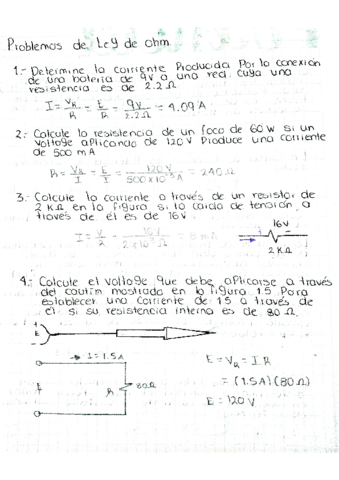 Problemas de Ley de ohm
1.- Determine la corriente Producida Por la conexion
de una bateria de 9v a una red. cuya una
resistencia es de 2.2 Ω
I = V_R/R = E/R = 9v/2.2Ω = 4.09 A
2.- Calcule la resistencia de un foco de 60 w si un
voltaje aplicando de 120 V Produce una corriente
de 500 mA
R = V_R/I = E/I = 120 V/500x10⁻³ A = 240 Ω
3.- Calcule la corriente a través de un resistor de
2 KΩ en la figura si la caida de tensión a
traves de él es de 16v
I = V/R = 16V/2x10³ Ω = 8 mA
16v
2 KΩ
4.- Calcule el voltaje que debe aplicarse a través
del cautin mostrado en la figura 1.5 Para
establecer una corriente de 1.5 a través de
el si su resistencia interna es de 80 Ω
E
I = 1.5A
R
80Ω
E = V_R = I R
= (1.5A)(80Ω)
E = 120V